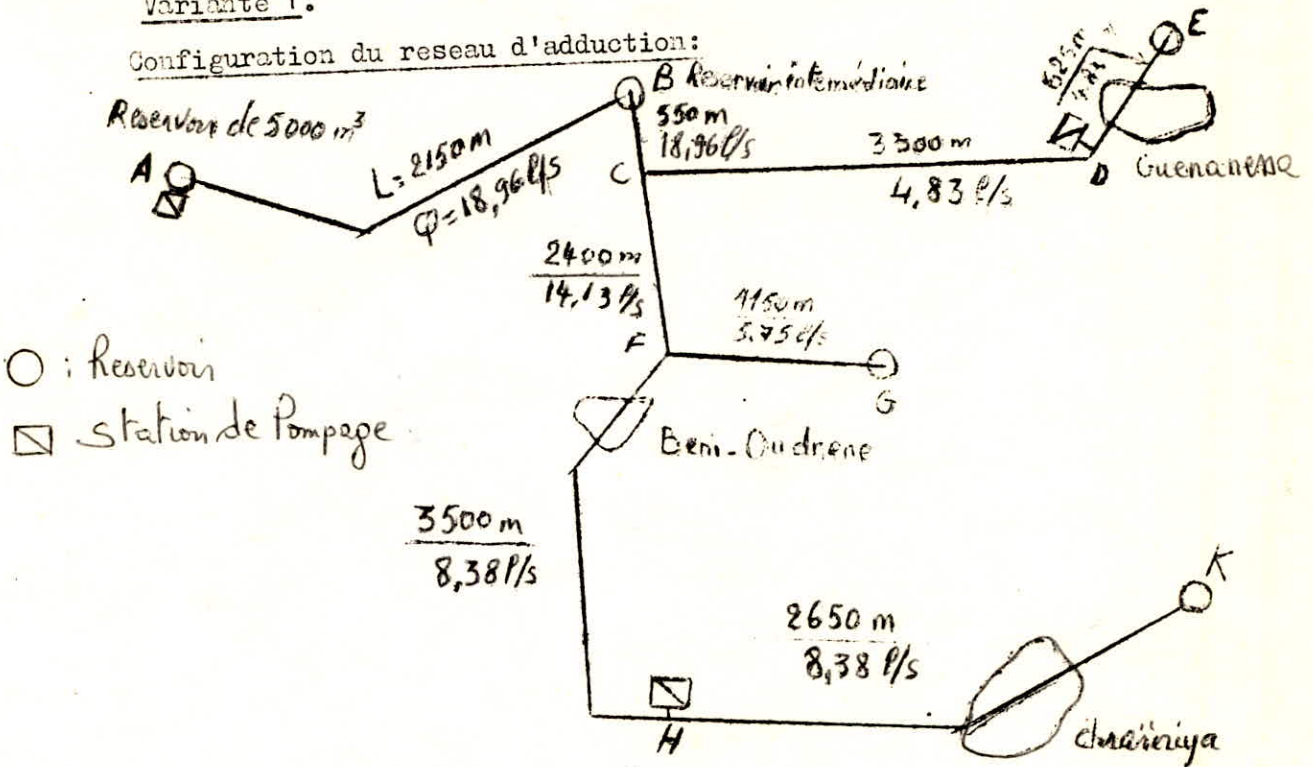 Variante 1.
Configuration du reseau d'adduction:
Reservoir de 5000 m³
A
L=2150m
Q=18,96 l/s
B Reservoir intermédiaire
550 m
18,96 l/s
C
3300 m
4,83 l/s
625m
4.83
E
D
Guenanessa
2400 m
14,13 l/s
1150m
5.75 l/s
F
G
O : Reservoir
Station de Pompage
Beni-Oudrene
3500 m
8,38 l/s
2650 m
8,38 l/s
K
H